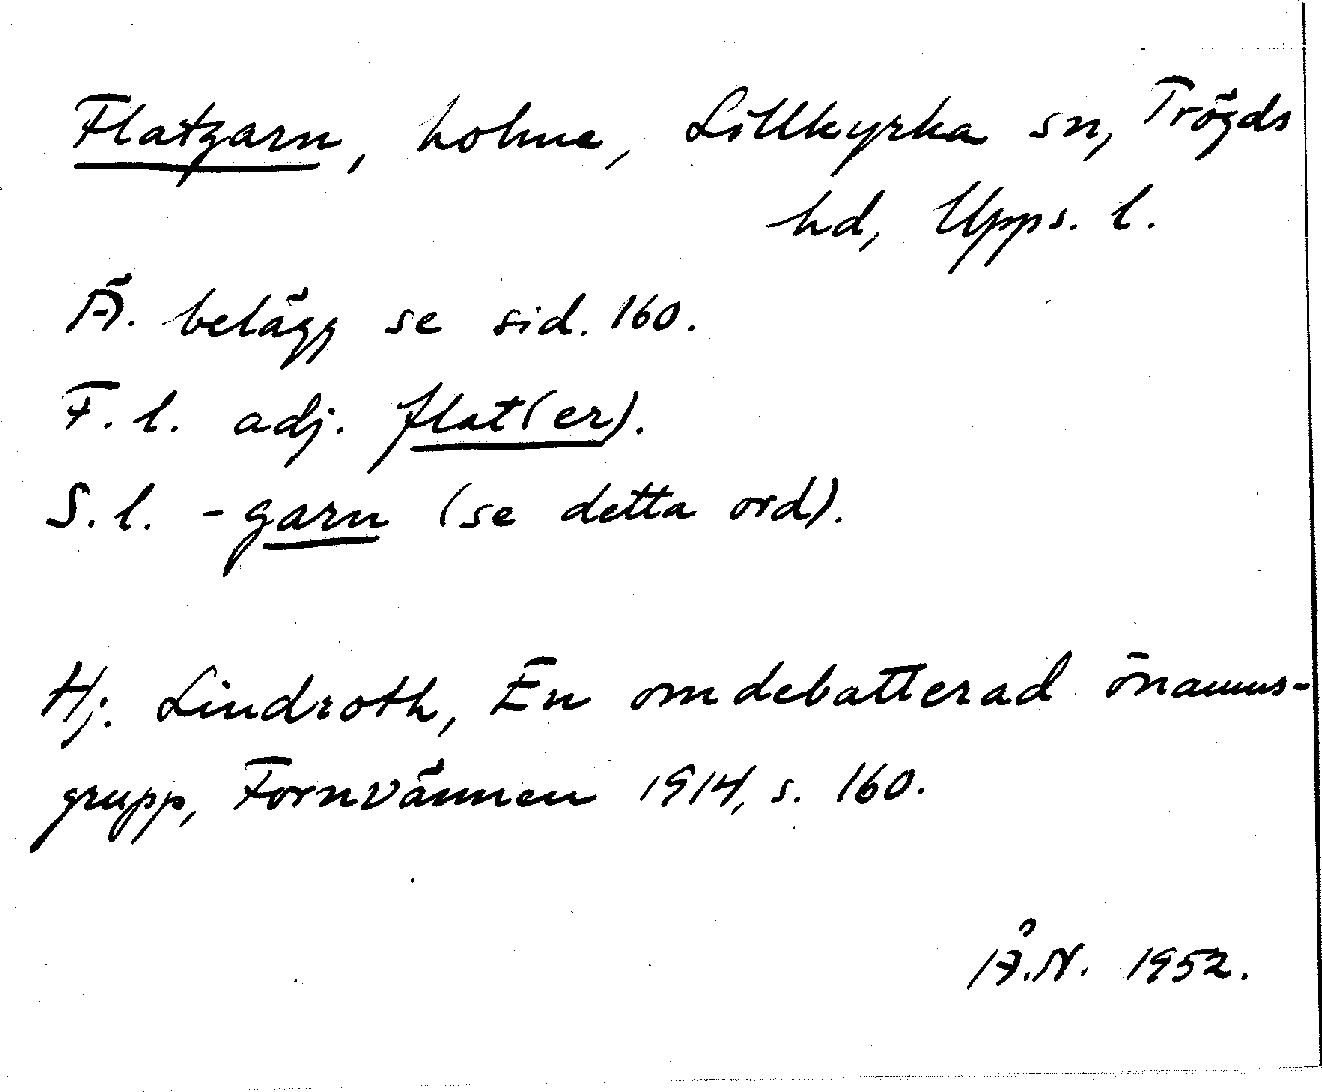 Flatgarn, holme, Lillkyrka sn, Trögds
hd, Upps. l.
Ä. belägg se sid. 160.
F. l. adj. flat(er).
S. l. -garn (se detta ord).
Hj. Lindroth, En omdebatterad önamns-
grupp, Fornvännen 1914, s. 160.
Å.N. 1952.